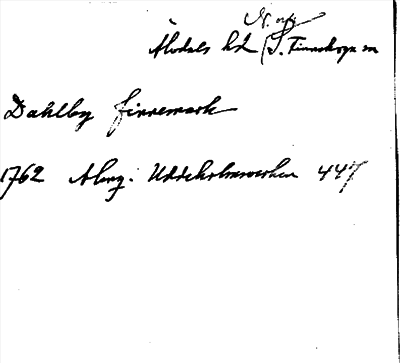 N. och
Älvdals hd (S. Finnskoga sn
Dahlby finnemark
1762 Abeg. Uddeholmsverken 447